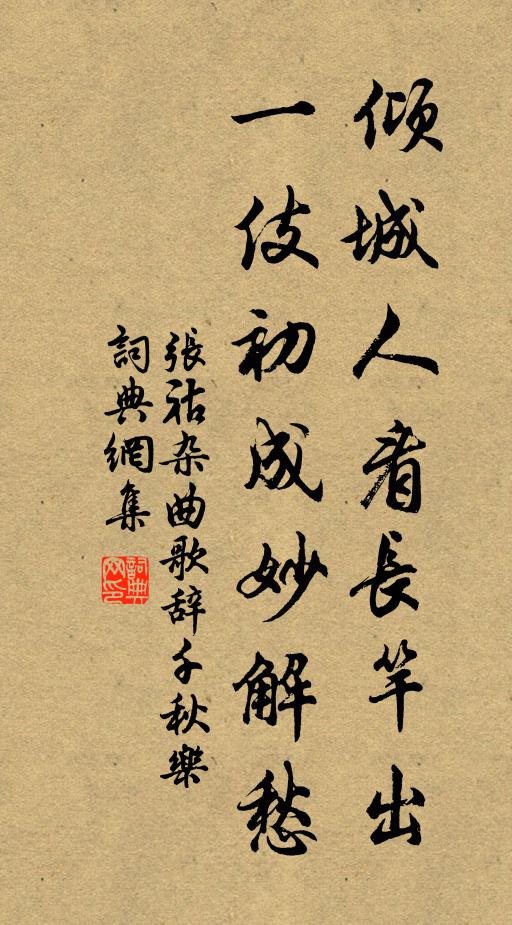 傾城人看長竿出
一伎初成妙解愁
張祜杂曲歌辞千秋樂
詞典網集
詞典网印